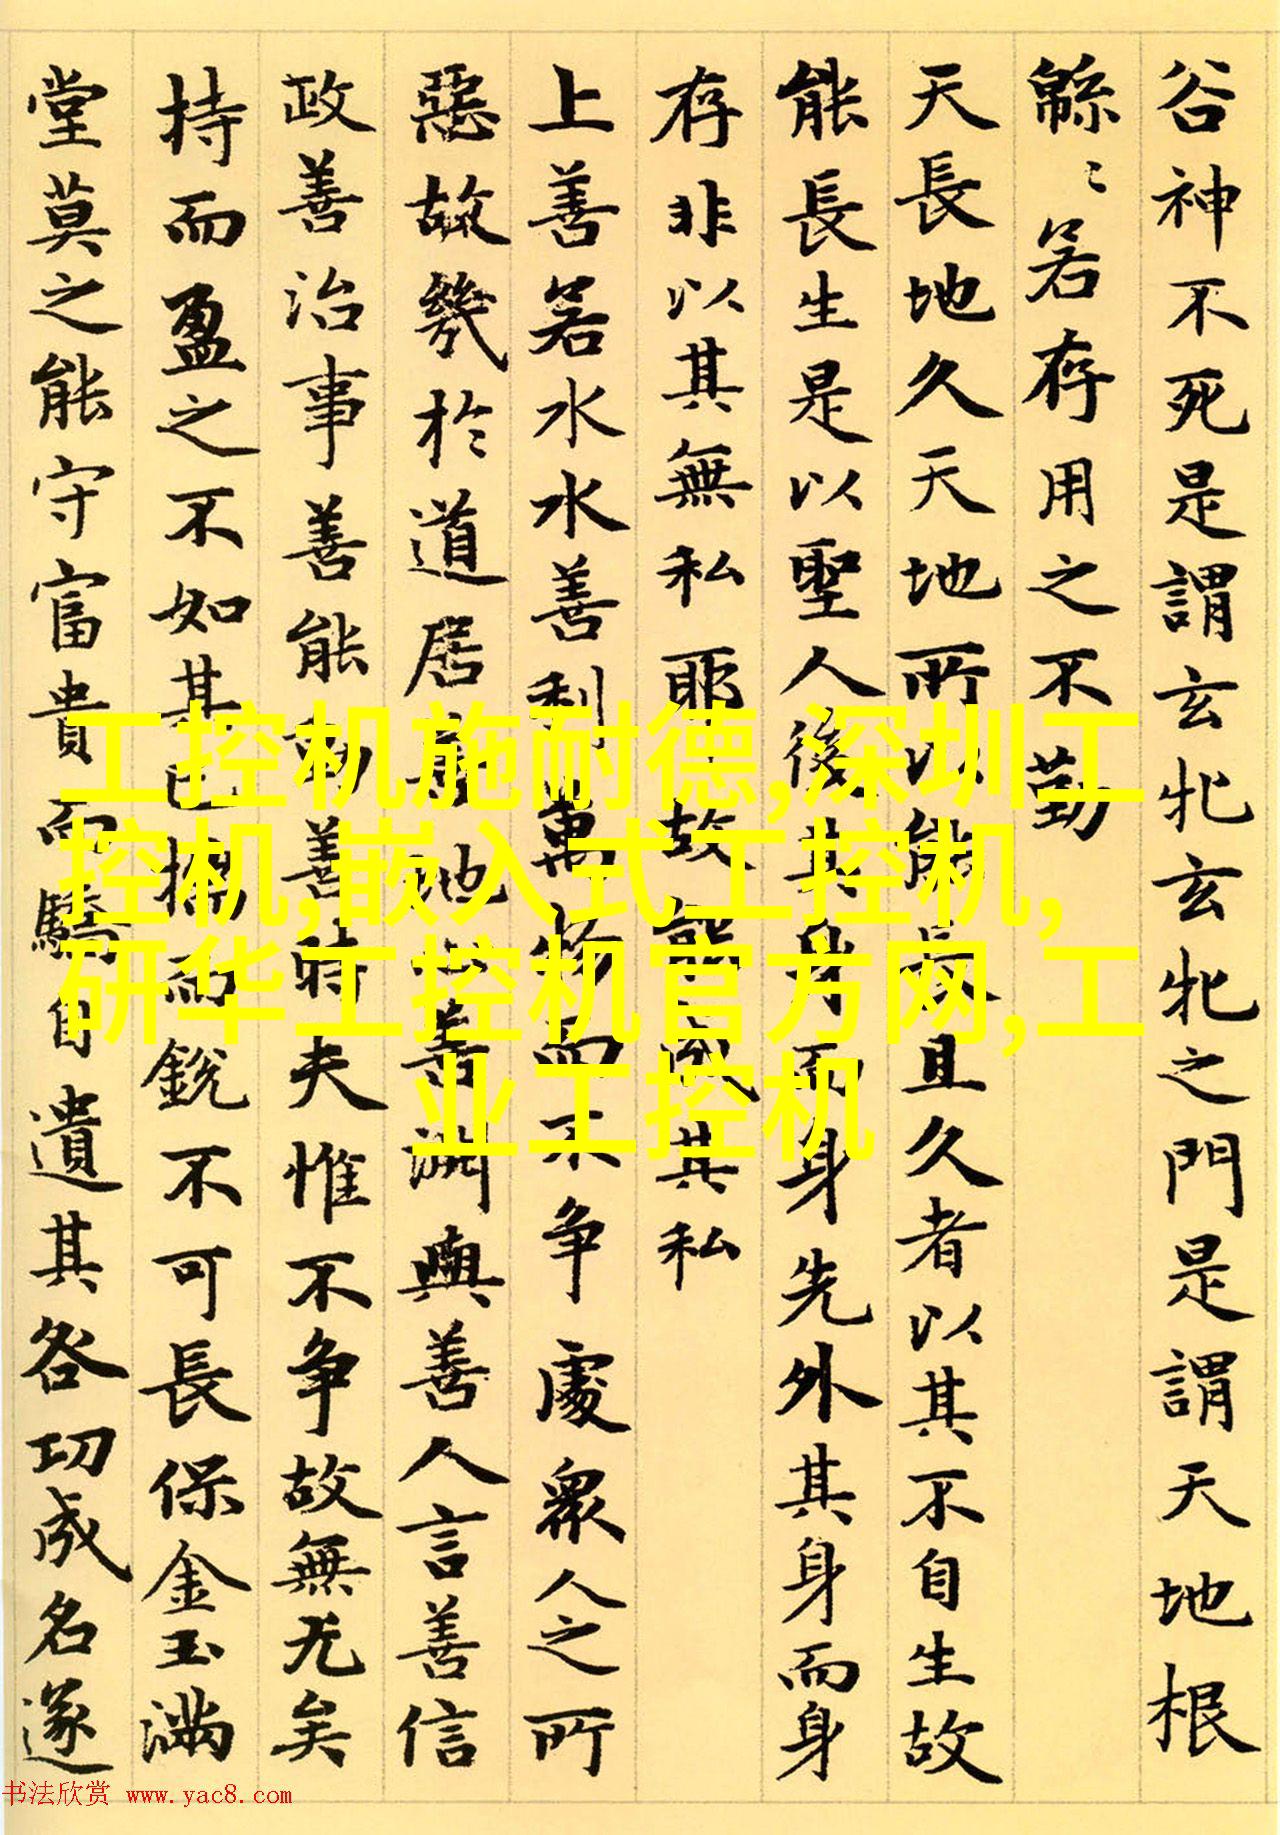 谷神不死是謂玄牝玄牝之門是謂天地根
緜〻若存用之不勤
天長地久天地所以能長且久者以其不自生故
能長生是以聖人後其身而身先外其身而身
存非以其無私耶故能成其私
上善若水水善利萬物而不争處衆人之所
惡故幾於道居善地心善淵與善人言善信
政善治事善能動善時夫惟不争故無尤矣
持而盈之不如其已揣而銳不可長保金玉滿
堂莫之能守富貴而驕自遺其咎功成名遂
工控机施耐德,深圳工
控机,嵌入式工控机,
研华工控机官方网,工
业工控机
书法欣赏 www.yac8.com